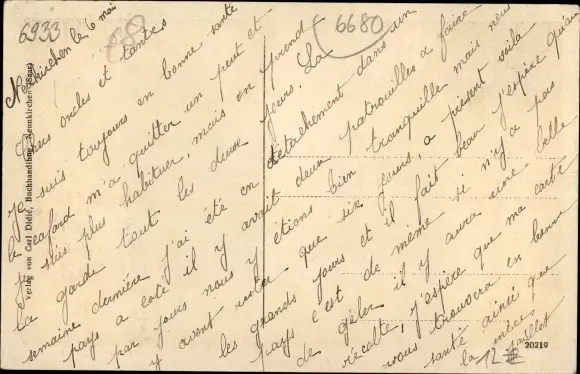 6933
£8
6680
Neunkirchen le 6 mai
Chers oncles et tantes
Je suis toujours en bonne santé
le cafard m'a quitter un peut et
Je suis plus habituer, mais on prend
la garde tout les deux jours. La
semaine dernière j'ai été en détachement dans un
pays a coté il y avait deux patrouilles a faire
par jours nous y étions bien tranquille mais nous
y avont rester que six jours, a présent voila
les grands jours et il fait beau j'espère qu'au
pays c'est de même si n'y a pas
de géler il y aura une belle
récolte, j'espère que ma carte
vous trouvera en bonne
santé ainsi que
la mère
Jaillet
12
20210
Verlag von Carl Didié, Buchhandlung, Neunkirchen (Saar)